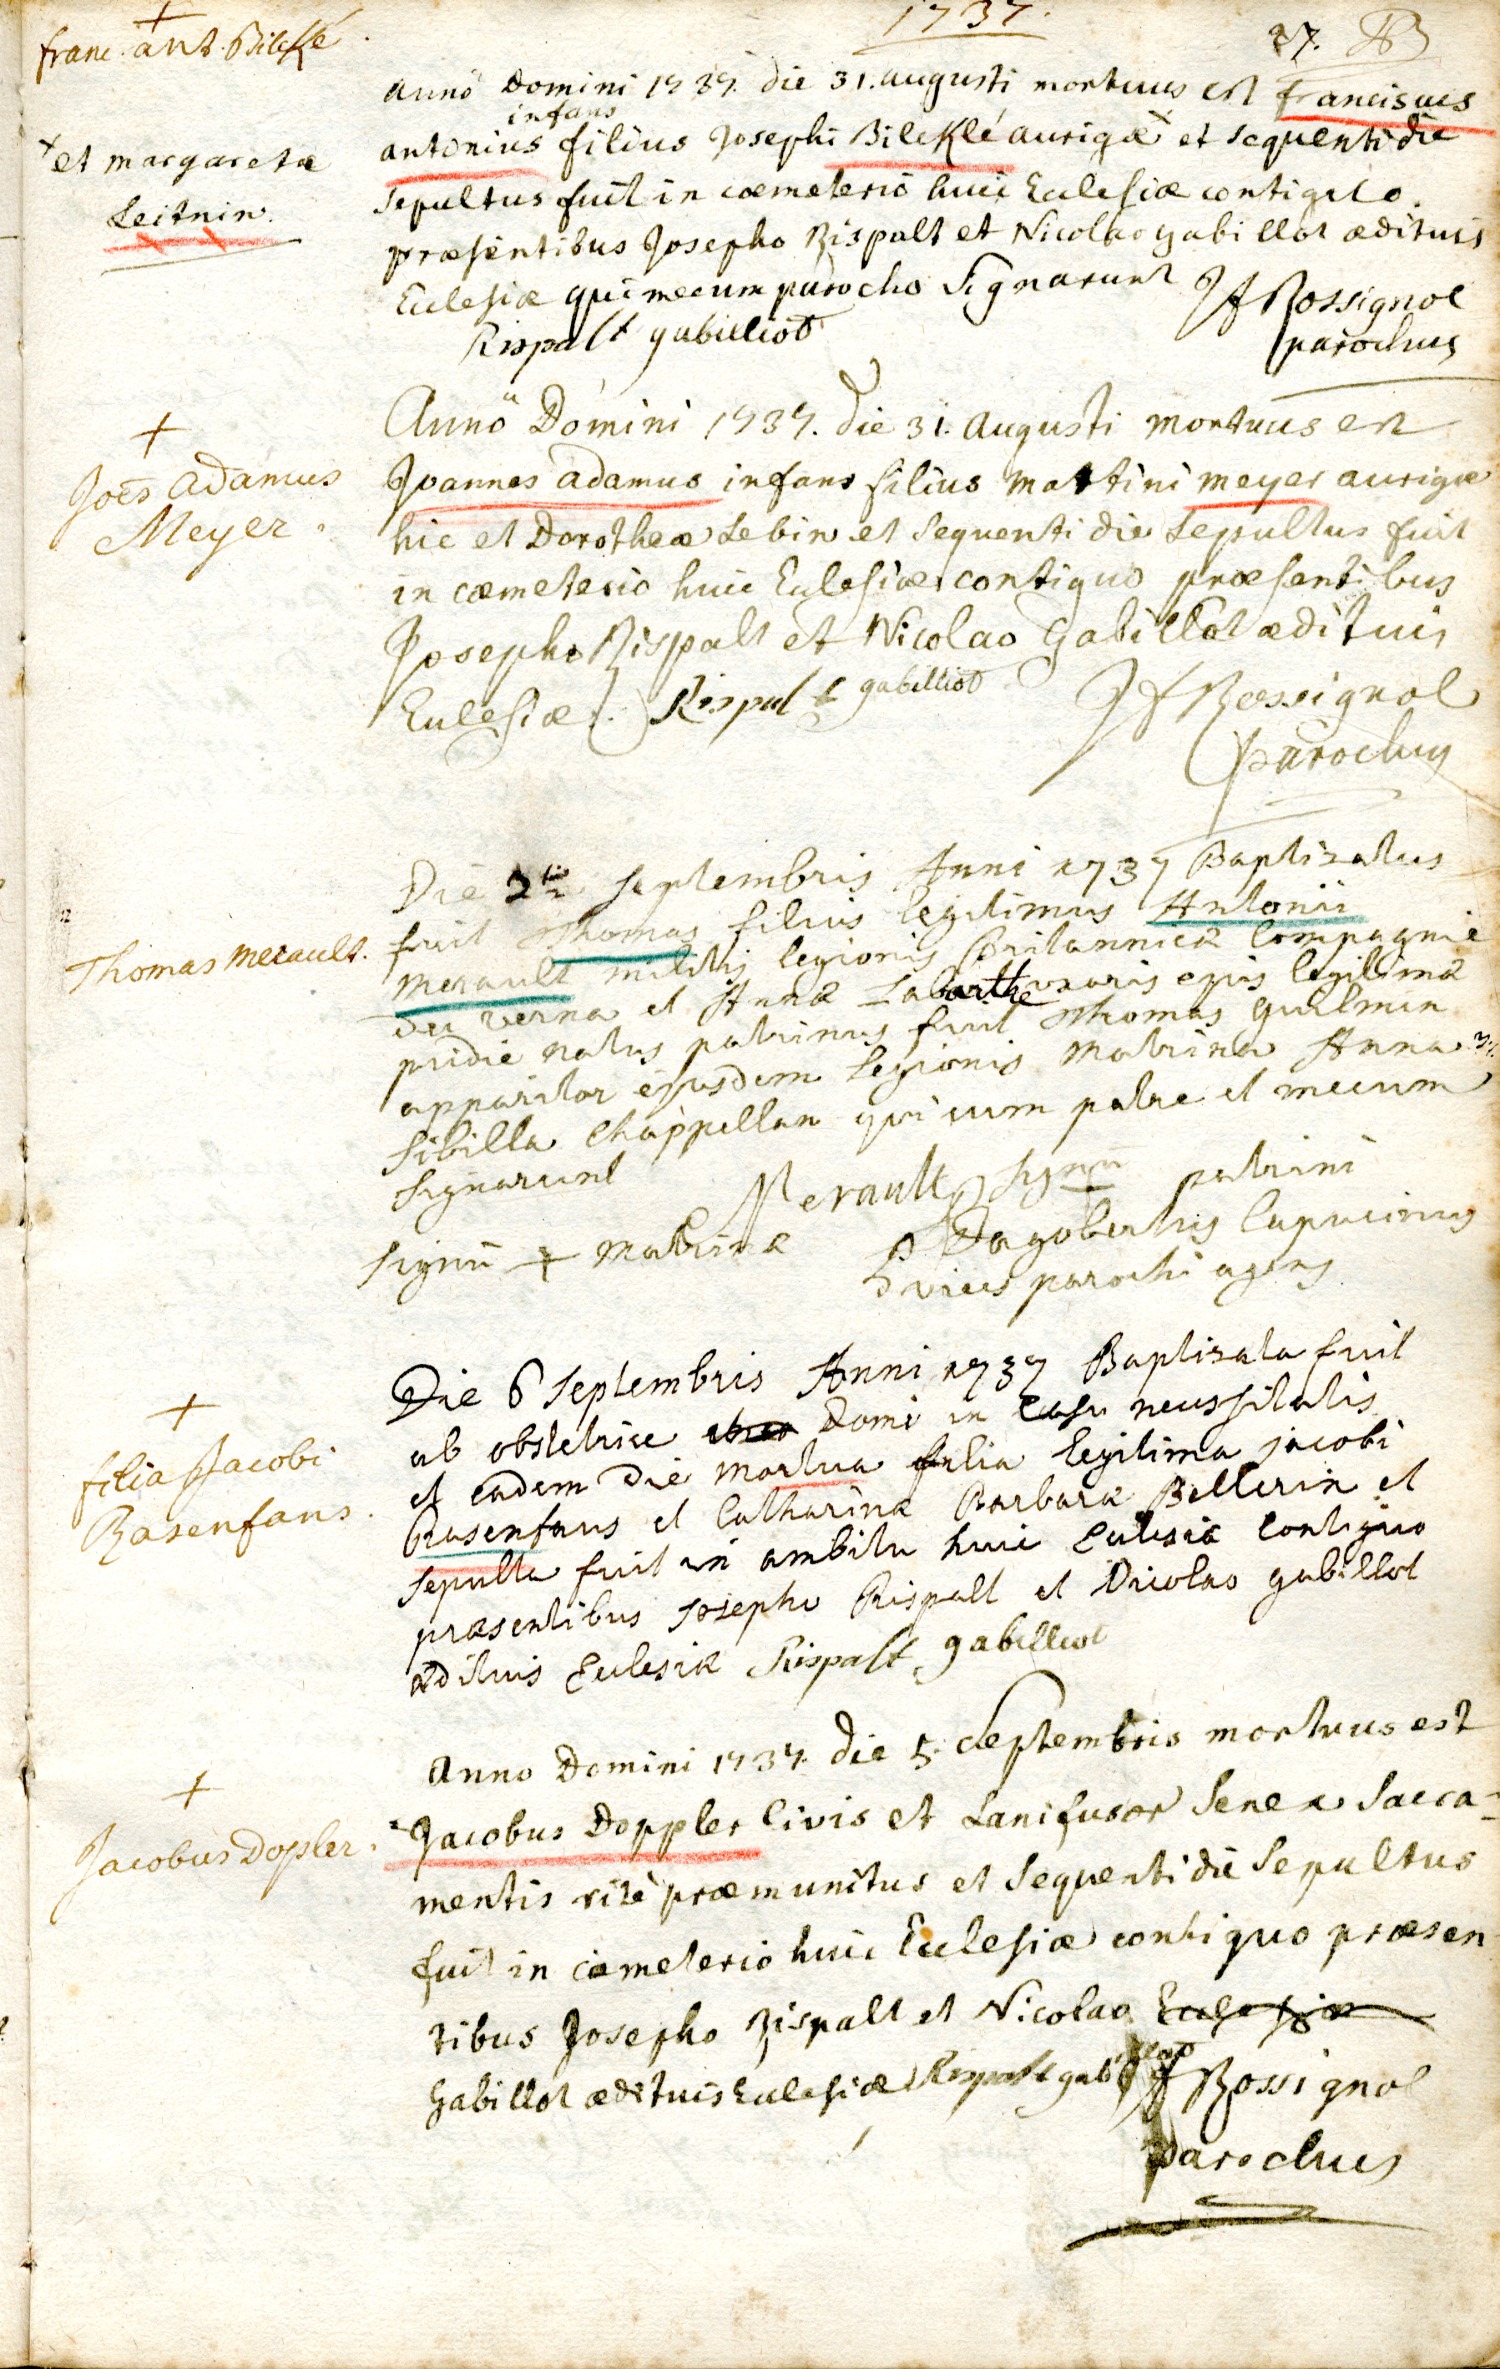 1737.
27.
+
franc. ant. Bileklé.
Anno Domini 1737. die 31. augusti mortuus est franciscus
infans
antonius filius Josephi Bileklé aurigæ + et sequenti die
+ et margaretæ
Leitnin.
sepultus fuit in cœmeterio huic Ecclesiæ contiguo.
præsentibus Josepho Rispalt et Nicolao gabillot ædituis
Ecclesiæ qui mecum parocho signarunt
JfRossignol
Rispalt gabilliot
parochus
+
Joēs adamus
Meyer.
Anno Domini 1737. die 31. Augusti mortuus est
Joannes adamus infans filius Martini meyer aurigæ
hic et Dorotheæ Lebin et sequenti die sepultus fuit
in cœmeterio huic Ecclesiæ contiguo præsentibus
Josepho Rispalt et Nicolao Gabillot ædituis
Ecclesiæ. Rispalt gabilliot JfRossignol
parochus
Thomas merault.
Die 2ia Septembris Anni 1737 Baptizatus
fuit Thomas filius legitimus Antonii
merault militis legionis Britannicæ Compagnie
du verna et Annæ Labarthe uxoris ejus legitimæ
pridie natus patrinus fuit Thomas guilmin
apparitor ejusdem Legionis Matrina Anna
Sibilla Chappellan qui cum patre et mecum
signarunt
Merault signū patrini
signū + Matrinæ
P Dagobertus Capucinus
vices parochi agens
+
filia Jacobi
Rasenfans.
Die 6 Septembris Anni 1737 Baptizata fuit
ab obstetrice Domi in Casu necessitatis
et eadem Die Mortua filia legitima jacobi
Rasenfans et Catharinæ Barbaræ Bellerin et
sepulta fuit in ambitu huic Ecclesiæ Contiguo
præsentibus Josepho Rispalt et Nicolao gabillot
ædituis Ecclesiæ Rispalt gabilliot
+
Jacobus Dopler.
Anno Domini 1737. die 5. Septembris mortuus est
Jacobus Doppler Civis et Lanifusor Senex Sacra-
mentis ritè præmunitus et sequenti die Sepultus
fuit in cœmeterio huic Ecclesiæ contiguo præsen
tibus Josepho Rispalt et Nicolao Ecclesiæ
Gabillot ædituis Ecclesiæ Rispalt JfRossignol
parochus